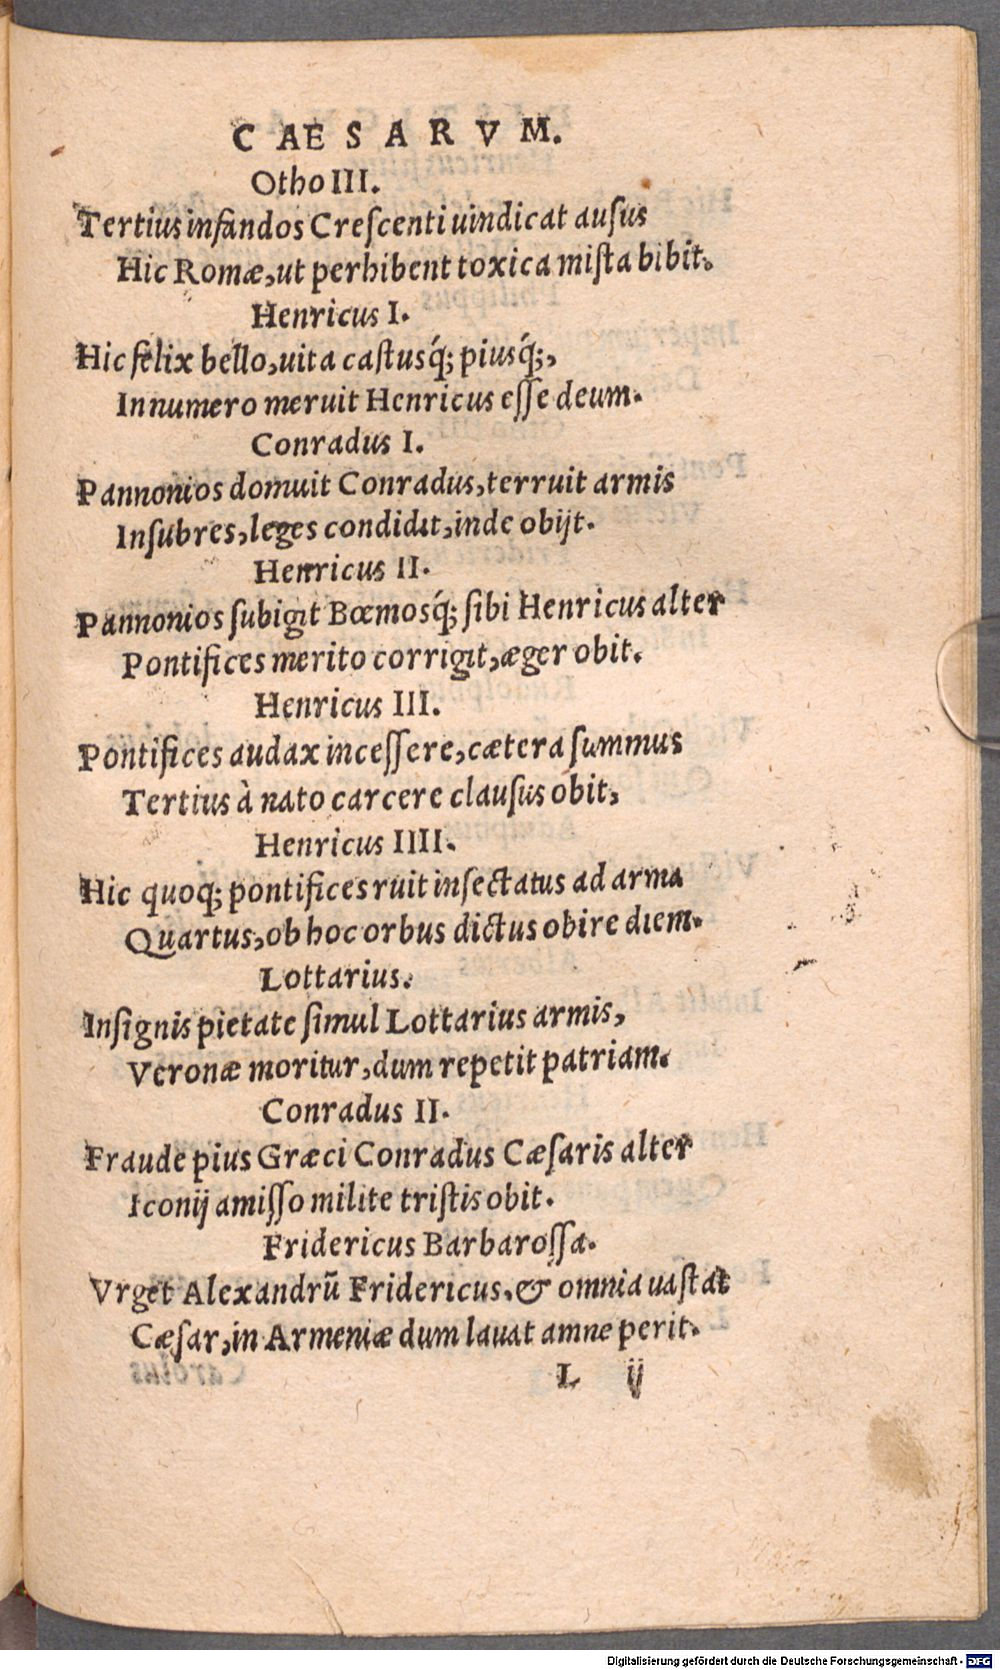 CAESARVM.
Otho III.
Tertius infandos Creſcenti uindicat auſus
Hic Romæ, ut perhibent toxica miſta bibit.
Henricus I.
Hic felix bello, uita caſtusq́; piusq́;,
In numero meruit Henricus eſſe deum.
Conradus I.
Pannonios domuit Conradus, terruit armis
Inſubres, leges condidit, inde obijt.
Henricus II.
Pannonios ſubigit Bœmosq́; ſibi Henricus alter
Pontifices merito corrigit, æger obit.
Henricus III.
Pontifices audax inceſſere, cætera ſummus
Tertius à nato carcere clauſus obit,
Henricus IIII.
Hic quoq; pontifices ruit inſectatus ad arma
Quartus, ob hoc orbus dictus obire diem.
Lottarius.
Inſignis pietate ſimul Lottarius armis,
Veronæ moritur, dum repetit patriam.
Conradus II.
Fraude pius Græci Conradus Cæſaris alter
Iconij amiſſo milite triſtis obit.
Fridericus Barbaroſſa.
Vrget Alexandrũ Fridericus, & omnia uaſtat
Cæſar, in Armeniæ dum lauat amne perit.
L ij
Digitalisierung gefördert durch die Deutsche Forschungsgemeinschaft - DFG